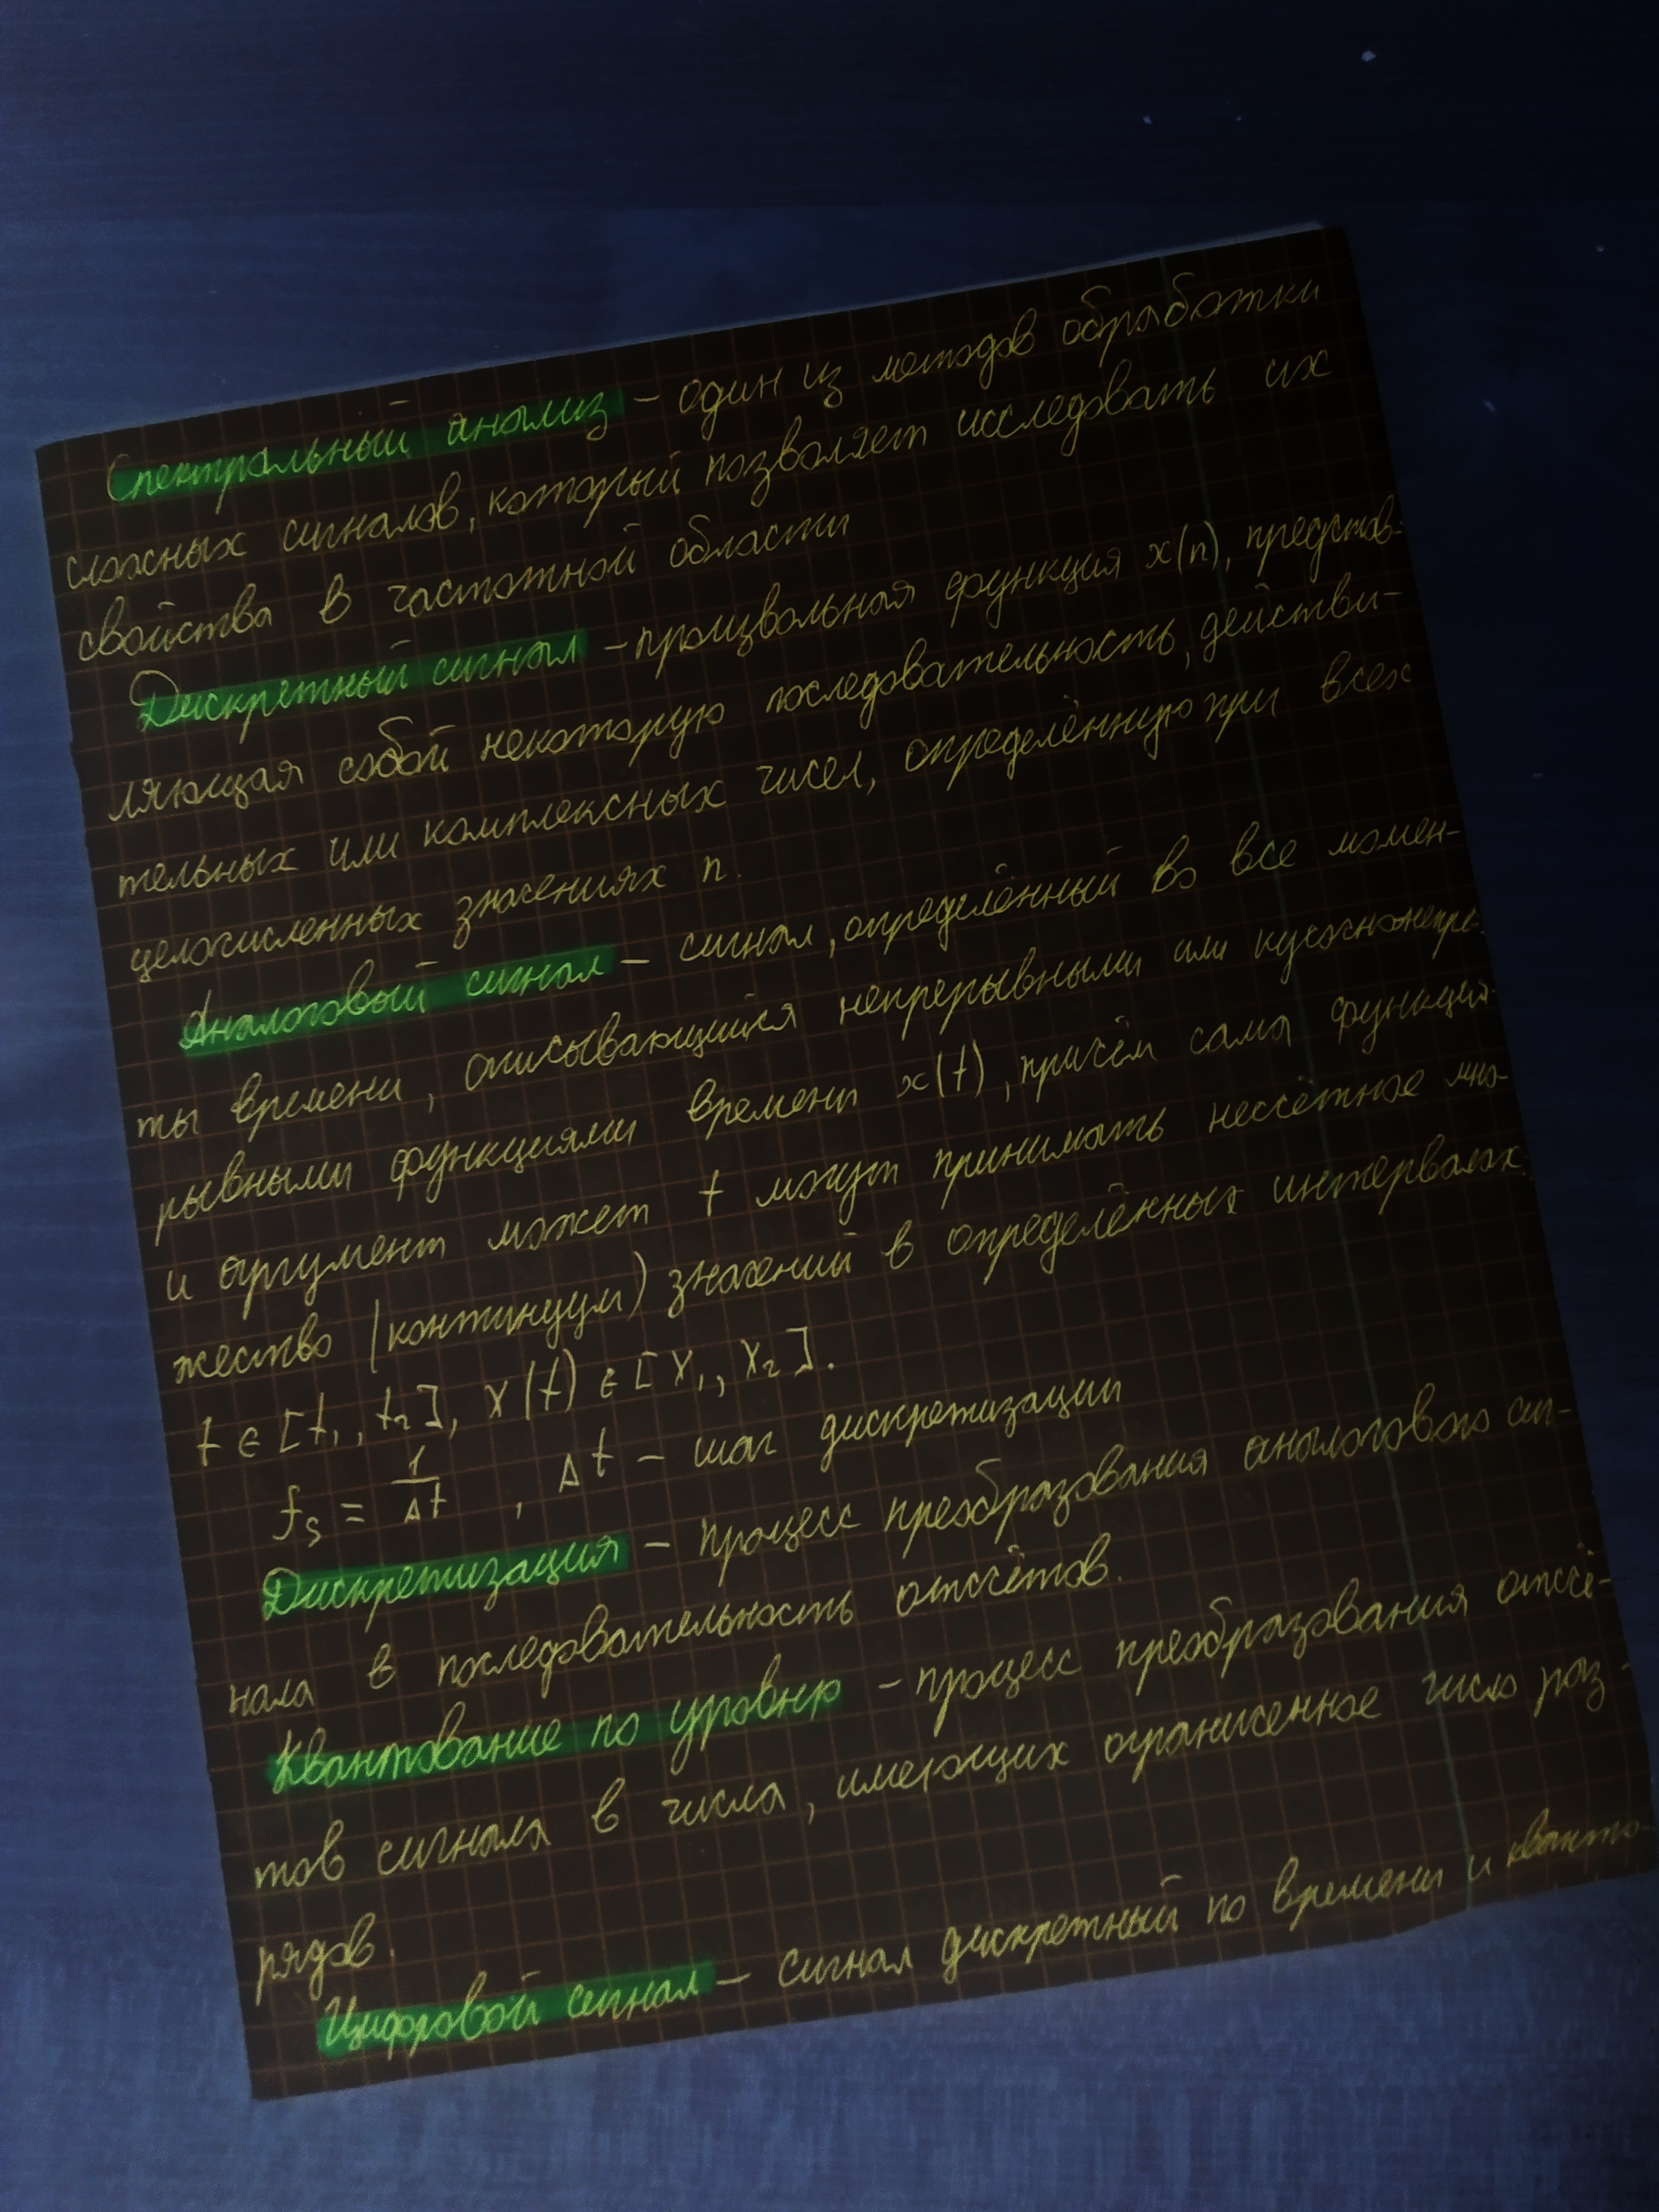 Спектральный анализ – один из методов обработки
сложных сигналов, который позволяет исследовать их
свойства в частотной области
Дискретный сигнал – произвольная функция x(n), представ-
ляющая собой некоторую последовательность, действи-
тельных или комплексных чисел, определённую при всех
целочисленных значениях n.
Аналоговый сигнал – сигнал, определённый во все момен-
ты времени, описывающийся непрерывными или кусочнонепре-
рывными функциями времени x(t), причём сама функция
и аргумент может t могут принимать несчётное мно-
жество (континуум) значений в определённых интервалах
t ∈ [t₁, t₂], x(t) ∈ [x₁, x₂].
fs = 1/Δt , Δt – шаг дискретизации
Дискретизация – процесс преобразования аналогового сиг-
нала в последовательность отсчётов.
Квантование по уровню – процесс преобразования отсчё-
тов сигнала в числа, имеющих ограниченное число раз-
рядов.
Цифровой сигнал – сигнал дискретный по времени и кванто-